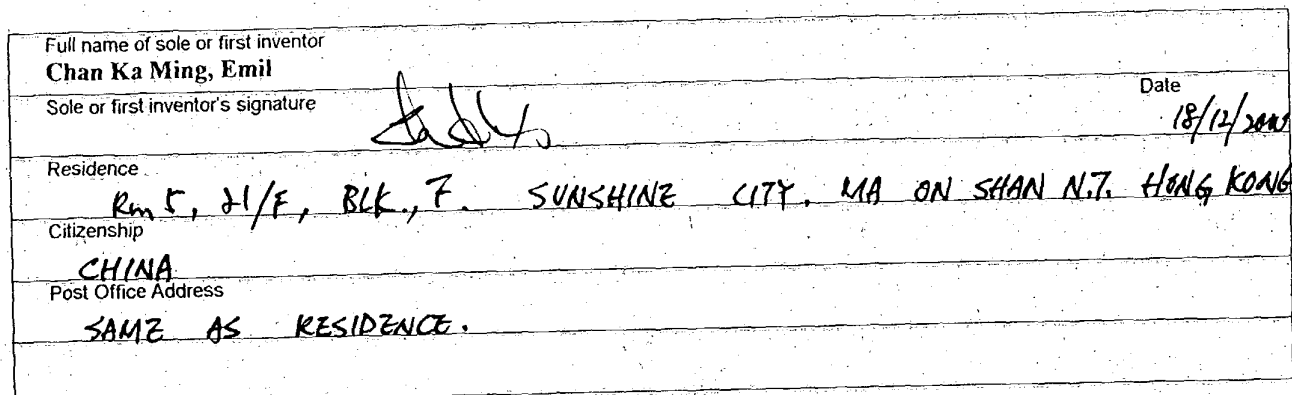 Full name of sole or first inventor
Chan Ka Ming, Emil
Sole or first inventor's signature
Date
18/12/2000
Residence
Rm 5, 21/F, BLK., 7. SUNSHINE CITY. MA ON SHAN N.T. HONG KONG
Citizenship
CHINA
Post Office Address
SAME AS RESIDENCE.